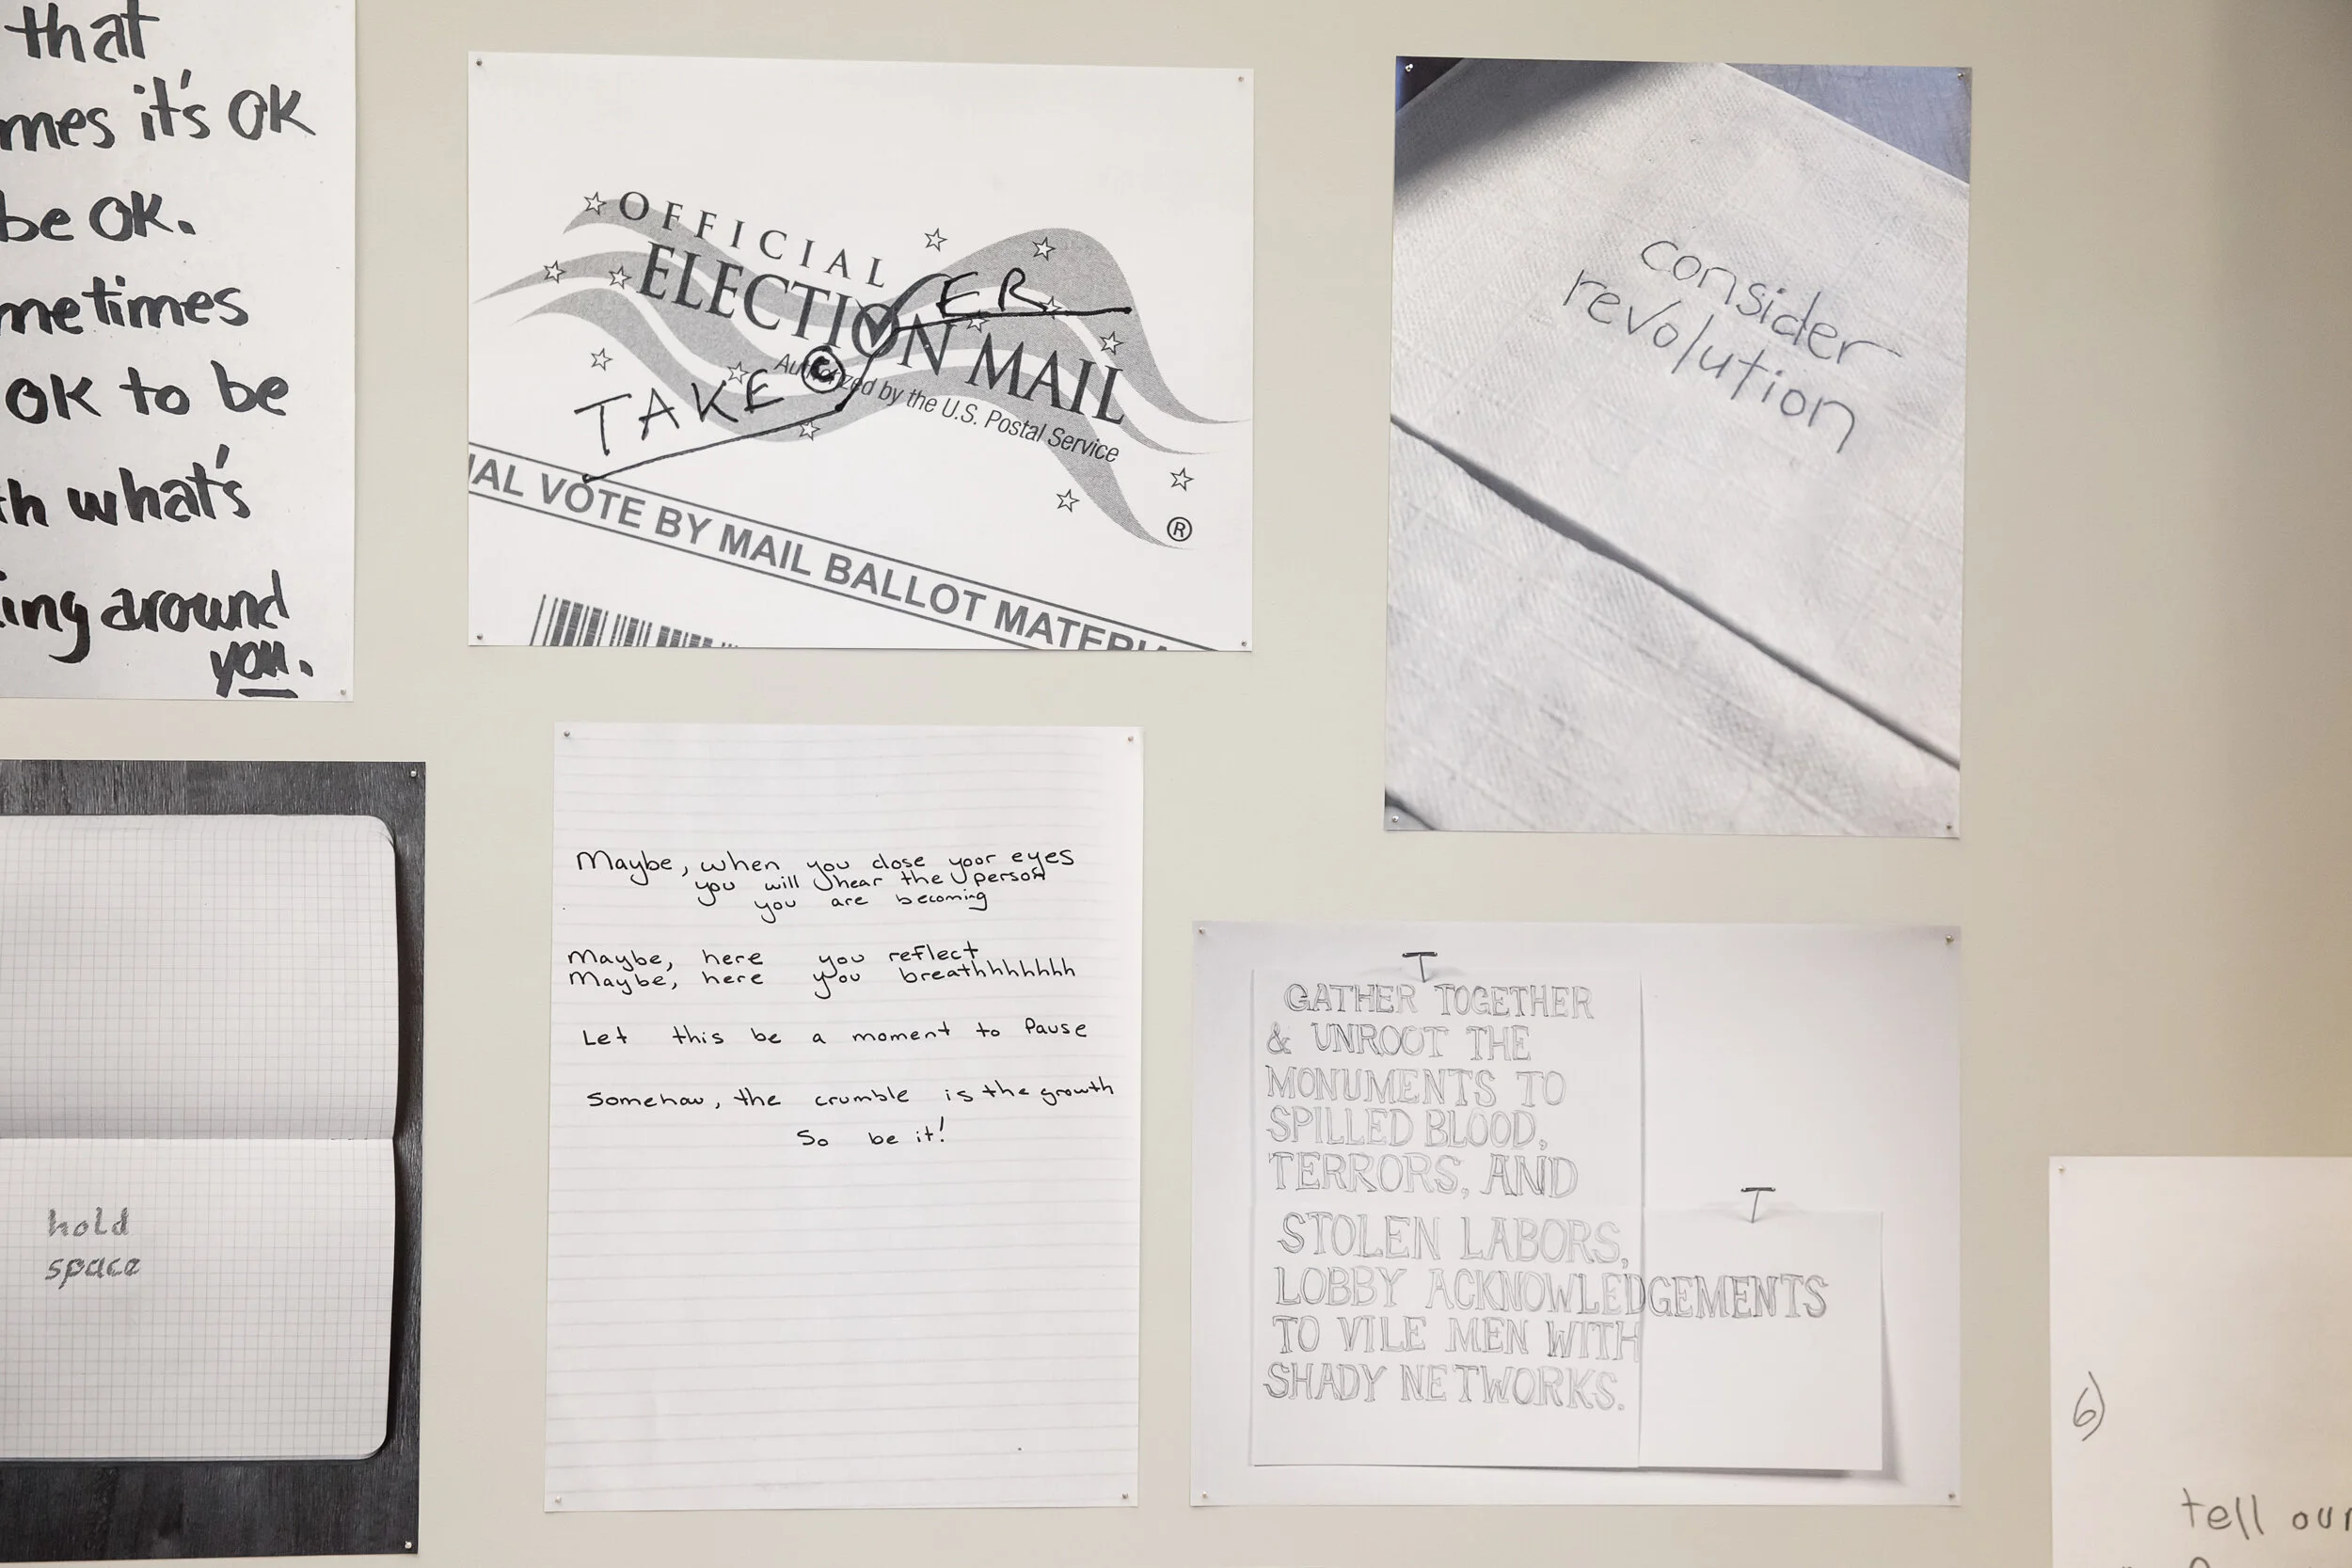 that
mes it's OK
be OK.
metimes
OK to be
th what's
ing around
you.
OFFICIAL
ELECTION MAIL
Authorized by the U.S. Postal Service
TAKE OVER
®
IAL VOTE BY MAIL BALLOT MATERI
consider
revolution
hold
space
Maybe, when you close your eyes
you will hear the person
you are becoming
Maybe, here you reflect
Maybe, here you breathhhhhhh
Let this be a moment to Pause
Somehow, the crumble is the growth
So be it!
GATHER TOGETHER
& UNROOT THE
MONUMENTS TO
SPILLED BLOOD,
TERRORS, AND
STOLEN LABORS,
LOBBY ACKNOWLEDGEMENTS
TO VILE MEN WITH
SHADY NETWORKS.
6)
tell our